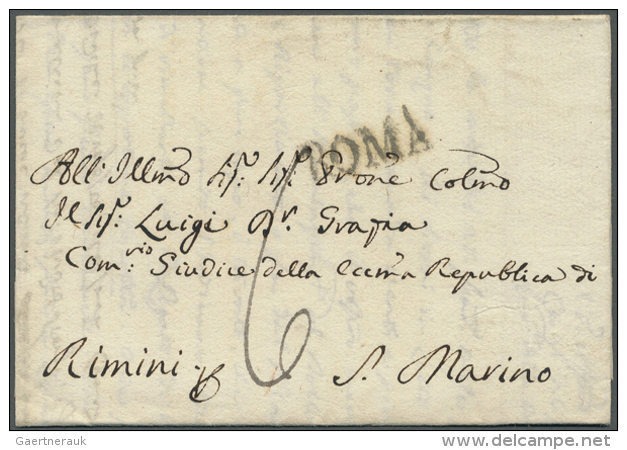 ROMA
All' Illmo Sig. Sig. Prone Colmo
Il Sig. Luigi Dr. Grazia
Com.rio Giudice della Eccma Repubblica di
6
Rimini S. Marino
Gaertnerauk
delcampe.net